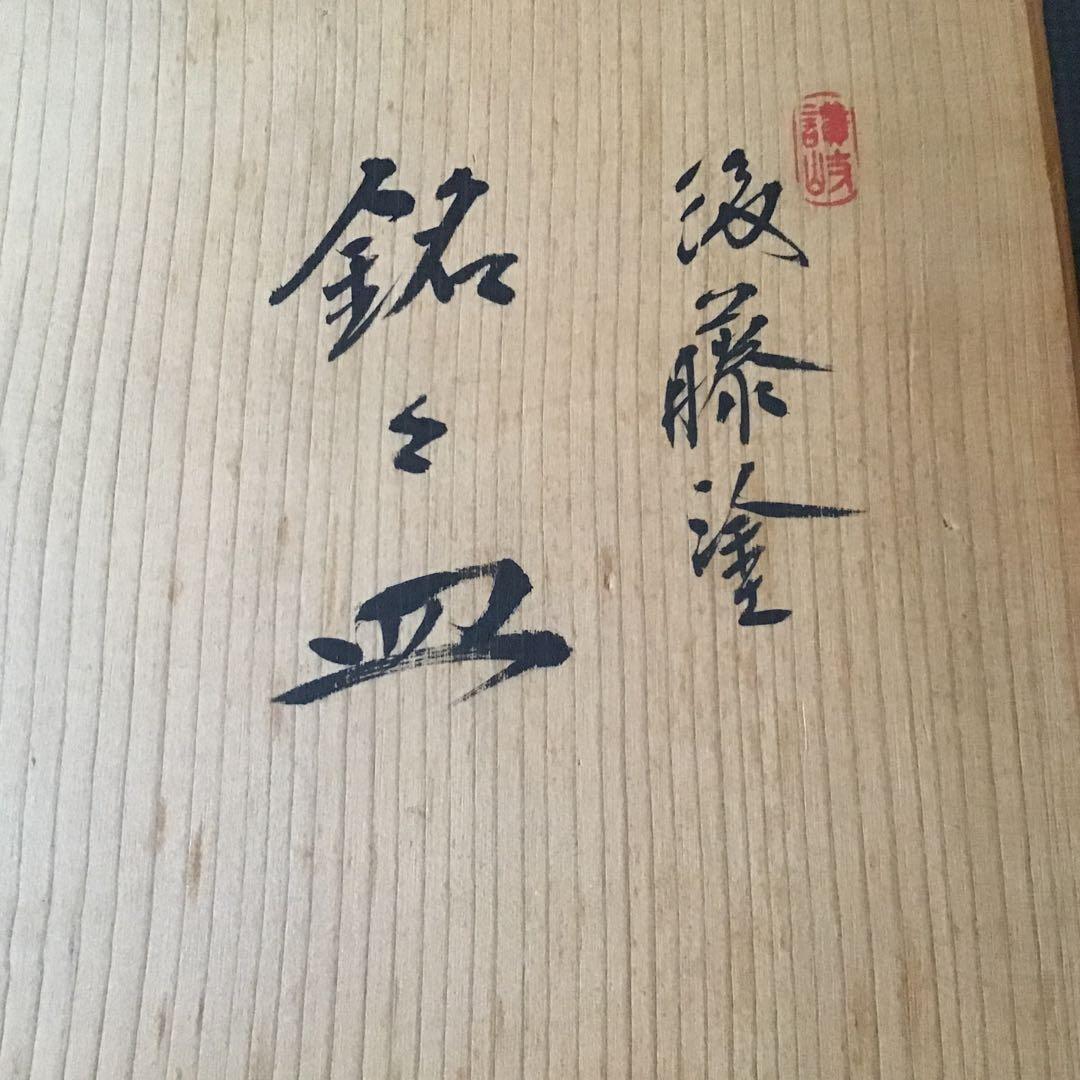 讃岐
後藤塗
銘々皿